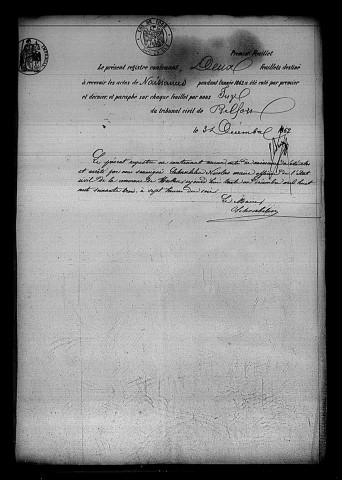 Premier Feuillet
Le présent registre contenant Deux feuillets destiné
à recevoir les actes de Naissances pendant l'année 1863 a été coté par premier
et dernier, et paraphé sur chaque feuillet par nous Juge
du tribunal civil de Belfort
le 31 Décembre 1862
Ce présent registre ne contenant aucun acte de naissance
et arrêté par nous soussigné Nicolas maire officier de l'état
civil de la commune de trente un décembre mil huit
cent soixante trois à sept heures du soir
Le Maire